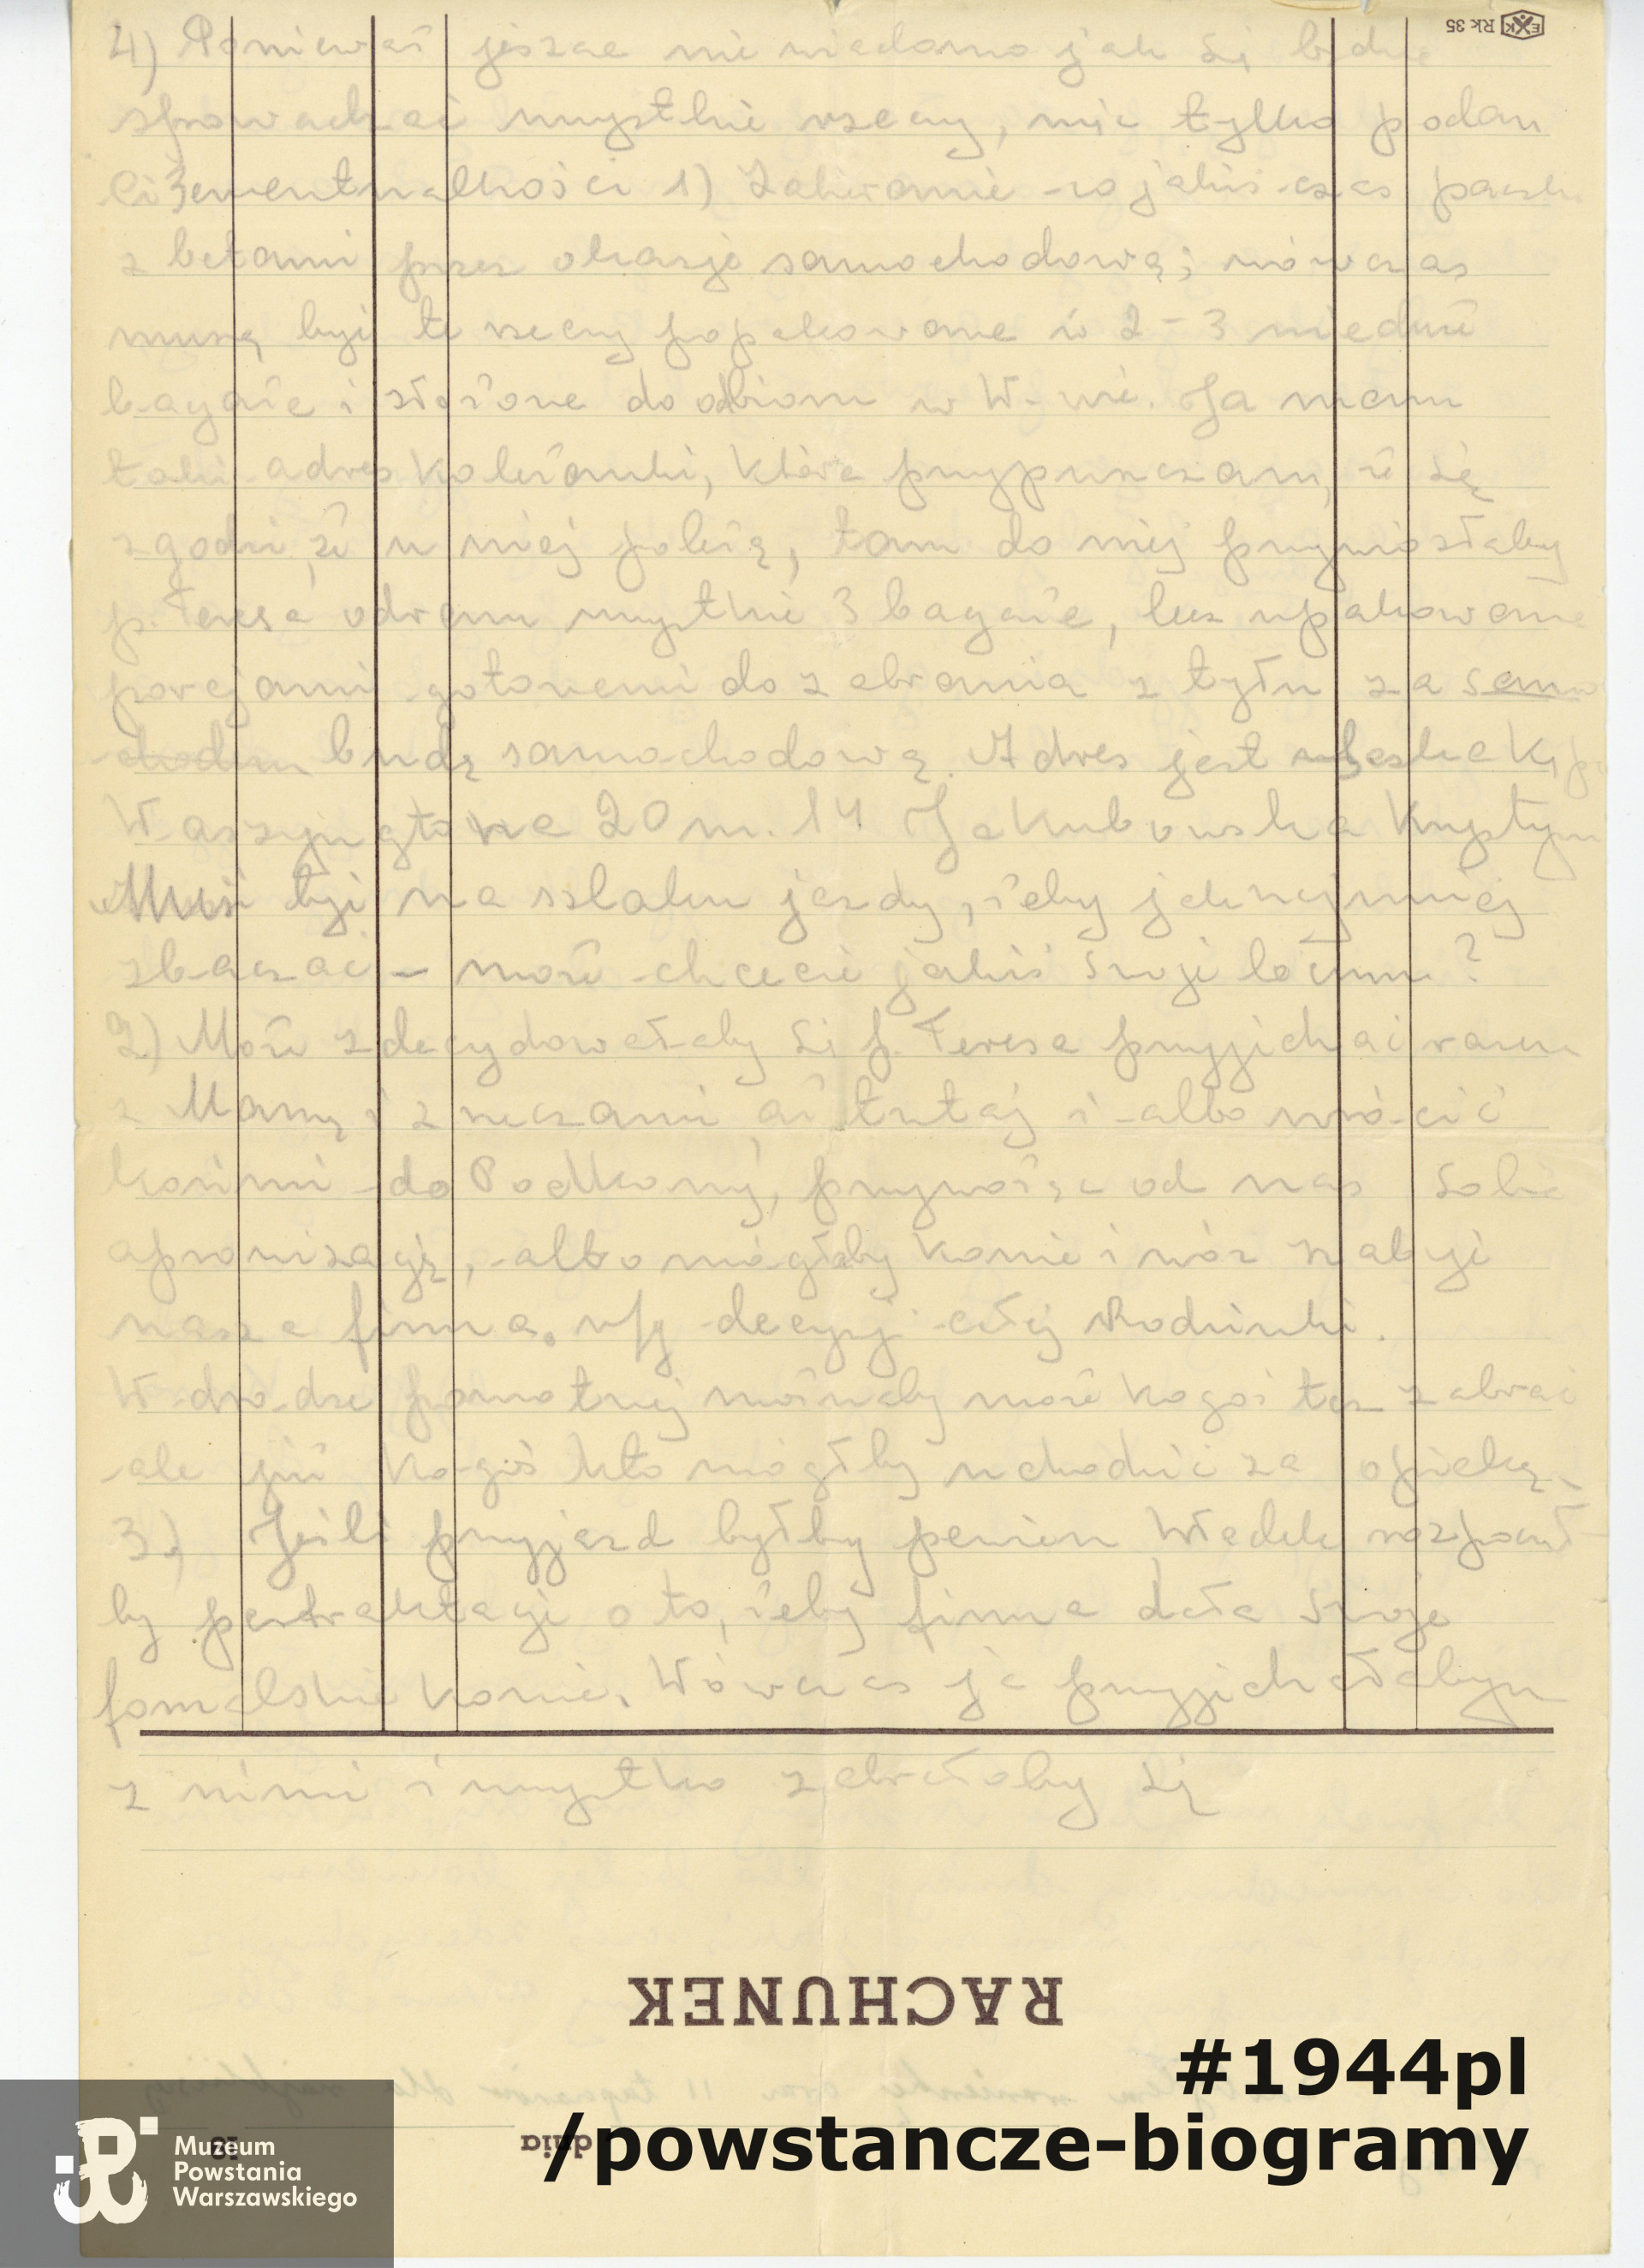 Rk 35
4) Ponieważ jeszcze nie wiadomo jak się będzie
sprowadzać wszystkie rzeczy, więc tylko podam
Ci 3 ewentualności 1) Zabieranie co jakiś czas paczki
z betami przez okazję samochodową; wówczas
muszą być te rzeczy popakowane w 2-3 nieduże
bagaże i złożone do odbioru w W-wie. Ja mam
taki adres koleżanki, która przypuszczam, że się
zgodzi, że u niej poleżą, tam do niej przyniosłaby
p. Teresa odrazu wszystkie 3 bagaże, lecz upakowane
porcjami gotowemi do zabrania z tyłu za samo
chodem budą samochodową. Adres jest Saska Kępa
Waszyngtona 20 m. 14 Jakubowska Krystyna
Musi być na szlaku jazdy, żeby jaknajmniej
zbaczać – może chcecie jakiś swój locum?
2) Może zdecydowałaby się p. Teresa przyjechać razem
z Mamą i z rzeczami aż tutaj i albo wrócić
końmi do Podkowy, przywożąc od nas sobie
aprowizację, albo mogłaby konie i wóz nabyć
nasza firma, wg decyzji całej Rodzinki.
W drodze powrotnej możnaby może kogoś też zabrać
ale już kogoś kto mógłby uchodzić za opiekę.
3) Jeśli przyjazd byłby pewien Władek rozpocząłby
by pertraktacje o to, żeby firma dała swoje
konie. Wówczas ja przyjechałabym
z nimi i wszystko zabrałoby się
RACHUNEK
dnia
19
#1944pl
/powstancze-biogramy
Muzeum
Powstania
Warszawskiego